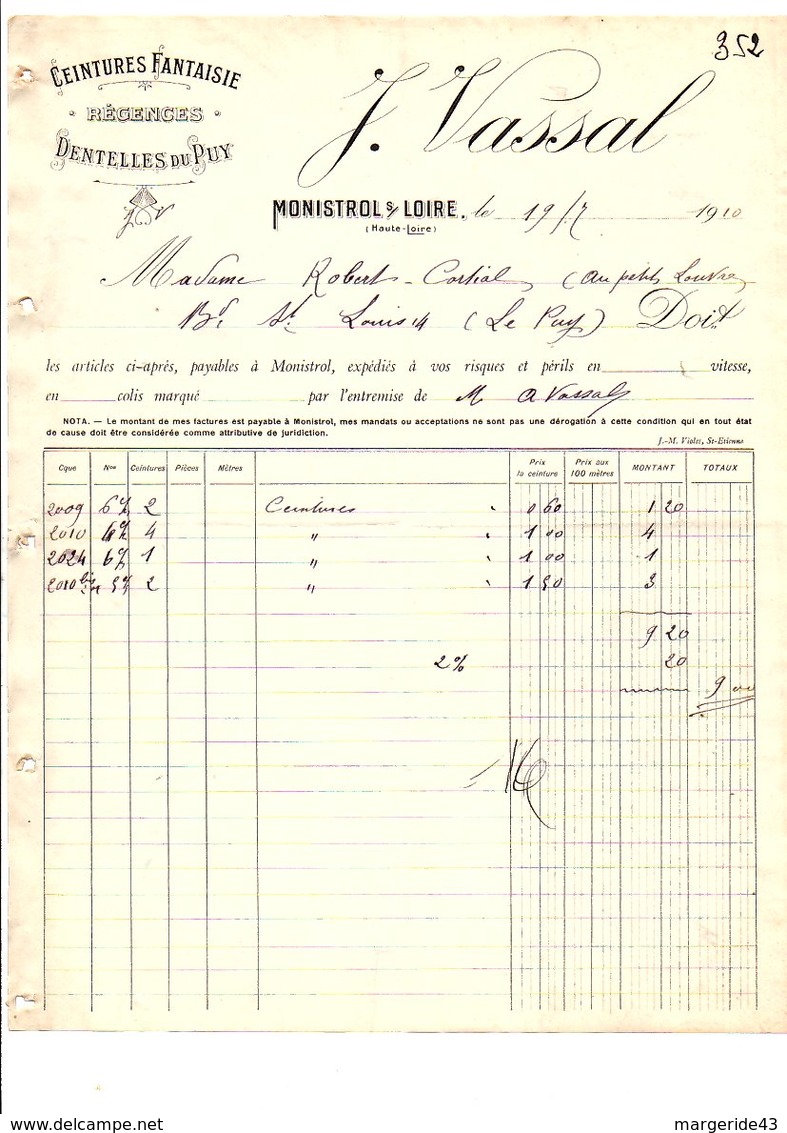 352
CEINTURES FANTAISIE
RÉGENCES
DENTELLES DU PUY
J. Vassal
MONISTROL S/ LOIRE, le 19/7 1910
(Haute-Loire)
Madame Robert-Cortial (au petit Louvre
Bd. St. Louis 14 (Le Puy) Doit
les articles ci-après, payables à Monistrol, expédiés à vos risques et périls en vitesse,
en colis marqué par l'entremise de M A Vassal
NOTA. — Le montant de mes factures est payable à Monistrol, mes mandats ou acceptations ne sont pas une dérogation à cette condition qui en tout état
de cause doit être considérée comme attributive de juridiction.
J.-M. Violet, St-Etienne
Cque Nos Ceintures Pièces Mètres Prix la ceinture Prix aux 100 mètres MONTANT TOTAUX
2009 2 Ceintures 0 60 1 20
2010 4 " 1 00 4
2024 1 " 1 00 1
2010 bis 2 " 1 50 3
9 20
2% 20
9 00
margeride43